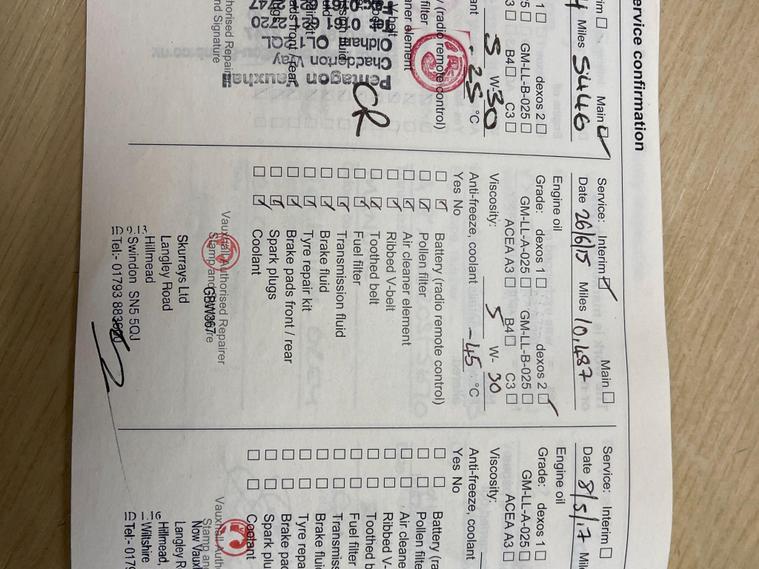 ervice confirmation
rim
Main
Miles 5446
dexos 2
GM-LL-B-025
B4 C3
5 W-30
-25 °C
y (radio remote control)
filter
eaner element
CR
Pentagon
Vauxha
horised Repairer
nd Signature
Service: Interim Main
Date 26/6/15 Miles 10,487
Engine oil
Grade: dexos 1 dexos 2
GM-LL-A-025 GM-LL-B-025
ACEA A3 B4 C3
Viscosity: 5 W- 30
Anti-freeze, coolant -45 °C
Yes No
Battery (radio remote control)
Pollen filter
Air cleaner element
Ribbed V-belt
Toothed belt
Fuel filter
Transmission fluid
Brake fluid
Tyre repair kit
Brake pads front / rear
Spark plugs
Coolant
Vauxhall Authorised Repairer
Skurrays Ltd
Langley Road
Hillmead
Swindon SN5 5QJ
Tel:- 01793 883500
Service: Interim
Date 8/5/17 Mil
Engine oil
Grade: dexos 1
GM-LL-A-025
ACEA A3
Viscosity:
Anti-freeze, coolant
Yes No
Battery (ra
Pollen filter
Air cleane
Ribbed V-
Toothed b
Fuel filter
Transmiss
Brake fluid
Tyre repa
Brake pad
Spark plu
Coolant
Vauxhall Auth
Stamp an
Now Vaux
Langley R
Hillmead,
Wiltshire
Tel:- 0179